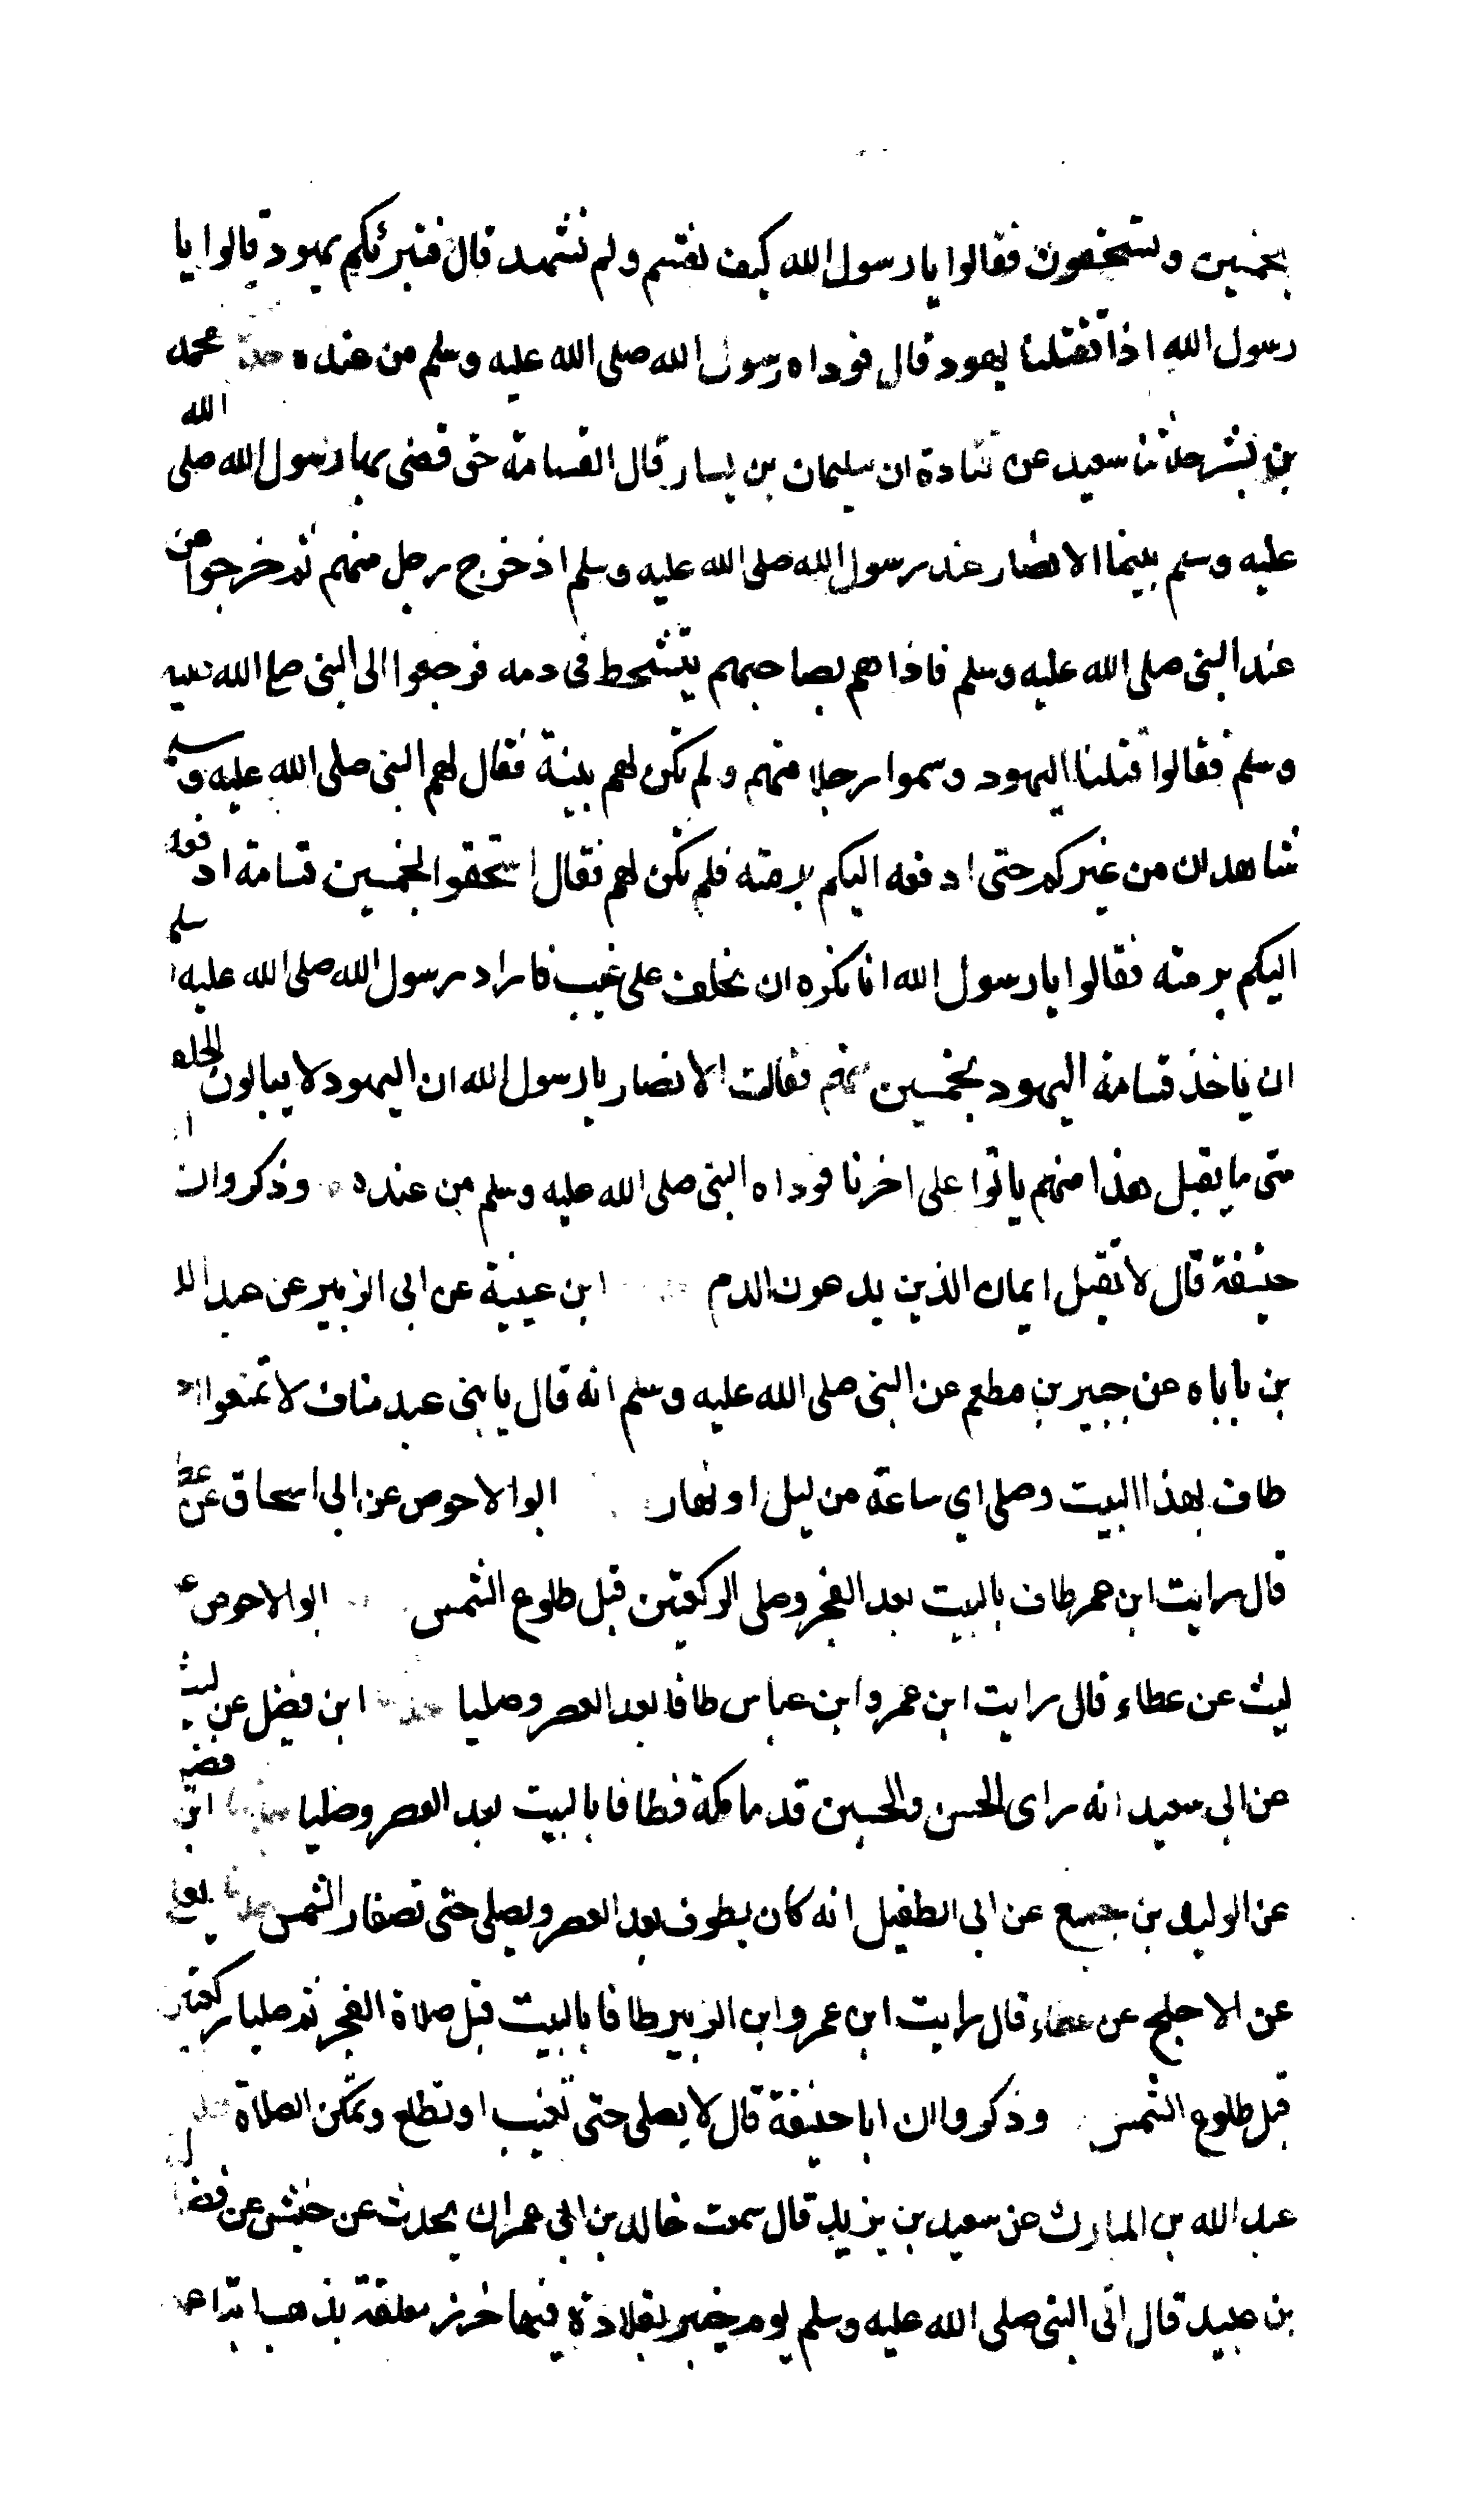 بخمسين وتستحقون فقالوا يا رسول الله كيف نقسم ولم نشهد قال فتبرئكم يهود قالوا يا
رسول الله اذا تقتلنا يهود قال فوداه رسول الله صلى الله عليه وسلم من عنده حدثنا محمد
بن بشر حدثنا سعيد عن قتادة ان سليمان بن يسار قال القسامة حق قضى بها رسول الله صلى الله
عليه وسلم بينما الانصار عند رسول الله صلى الله عليه وسلم اذ خرج رجل منهم ثم خرجوا من
عند النبي صلى الله عليه وسلم فاذا هم بصاحبهم يتشحط في دمه فرجعوا الى النبي صلى الله عليه
وسلم فقالوا قتلنا اليهود وسموا رجلا منهم ولم تكن لهم بينة فقال لهم النبي صلى الله عليه وسلم
شاهدان من غيركم حتى ادفعه اليكم برمته فلم تكن لهم فقال استحقوا بخمسين قسامة ادفعه
اليكم برمته فقالوا يا رسول الله انا نكره ان نحلف على غيب فاراد رسول الله صلى الله عليه وسلم
ان ياخذ قسامة اليهود بخمسين منهم فقالت الانصار يا رسول الله ان اليهود لا يبالون الحلف
متى ما يقبل هذا منهم ياتوا على اخرنا فوداه النبي صلى الله عليه وسلم من عنده وذكر وان ا
حنيفة قال لا تقبل ايمان الذين يدعون الدم ابن عيينة عن ابي الزبير عن عبد الله
بن باباه عن جبير بن مطعم عن النبي صلى الله عليه وسلم انه قال يا بني عبد مناف لا تمنعوا احد
طاف بهذا البيت وصلى اي ساعة من ليل او نهار ابو الاحوص عن ابي اسحاق عن عطا
قال رايت ابن عمر طاف بالبيت بعد الفجر وصلى الركعتين قبل طلوع الشمس ابو الاحوص ع
ليث عن عطاء قال رايت ابن عمر وابن عباس طافا بعد العصر وصليا حدثنا ابن فضيل عن ليث
عن ابي سعيد انه راى الحسن والحسين قدما مكة فطافا بالبيت بعد العصر وصليا حدثنا ابن فضيل
عن الوليد بن جميع عن ابي الطفيل انه كان يطوف بعد العصر ويصلي حتى تصفار الشمس حدثنا يعلى
عن الاجلح عن عطاء قال رايت ابن عمر وابن الزبير طافا بالبيت قبل صلاة الفجر ثم صليا ركعتين
قبل طلوع الشمس وذكروا ان ابا حنيفة قال لا يصلى حتى تغيب او تطلع وتمكن الصلاة
عبد الله بن المبارك عن سعيد بن يزيد قال سمعت خالد بن ابي عمران يحدث عن حنش عن فضا
بن عبيد قال اتى النبي صلى الله عليه وسلم يوم خيبر بقلادة فيها خرز معلقة بذهب ابتاعه